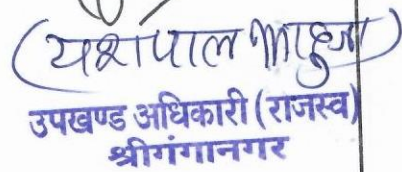 (यशपाल आहुजा)
उपखण्ड अधिकारी (राजस्व)
श्रीगंगानगर